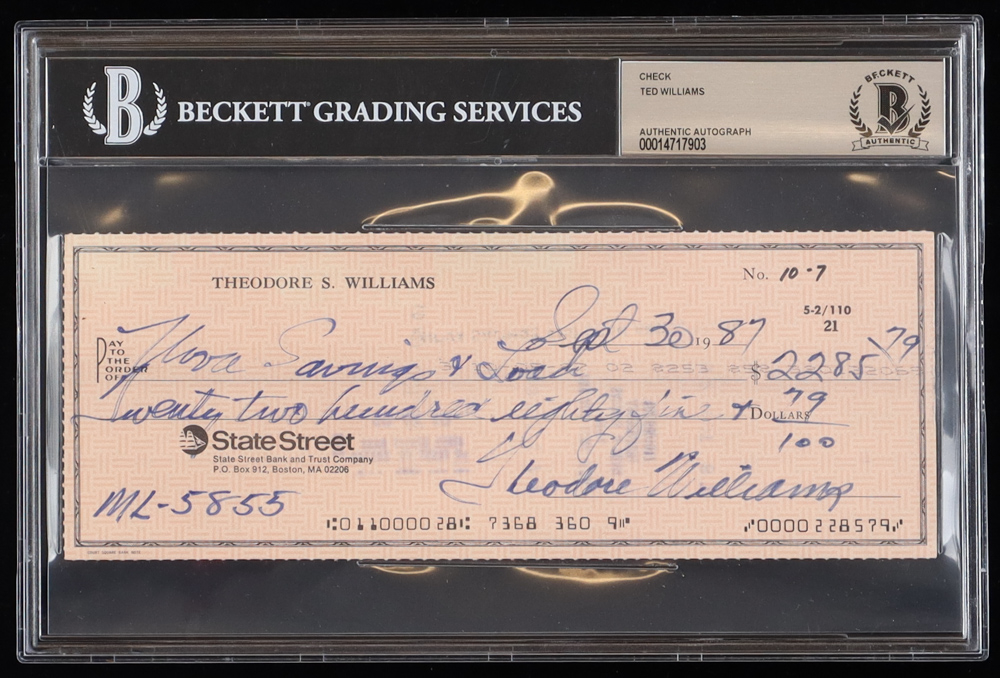 BECKETT GRADING SERVICES
CHECK
TED WILLIAMS
AUTHENTIC AUTOGRAPH
00014717903
BECKETT
B
AUTHENTIC
THEODORE S. WILLIAMS
No. 10-7
5-2/110
21
Sept 30 1987
PAY TO THE ORDER OF Nova Savings & Loan $ 2285 79
Twenty two hundred eighty five + 79/100 DOLLARS
State Street
State Street Bank and Trust Company
P.O. Box 912, Boston, MA 02206
Theodore Williams
ML-5855
⑆011000028⑆ 7368 360 9⑈ ⑇0000228579⑇